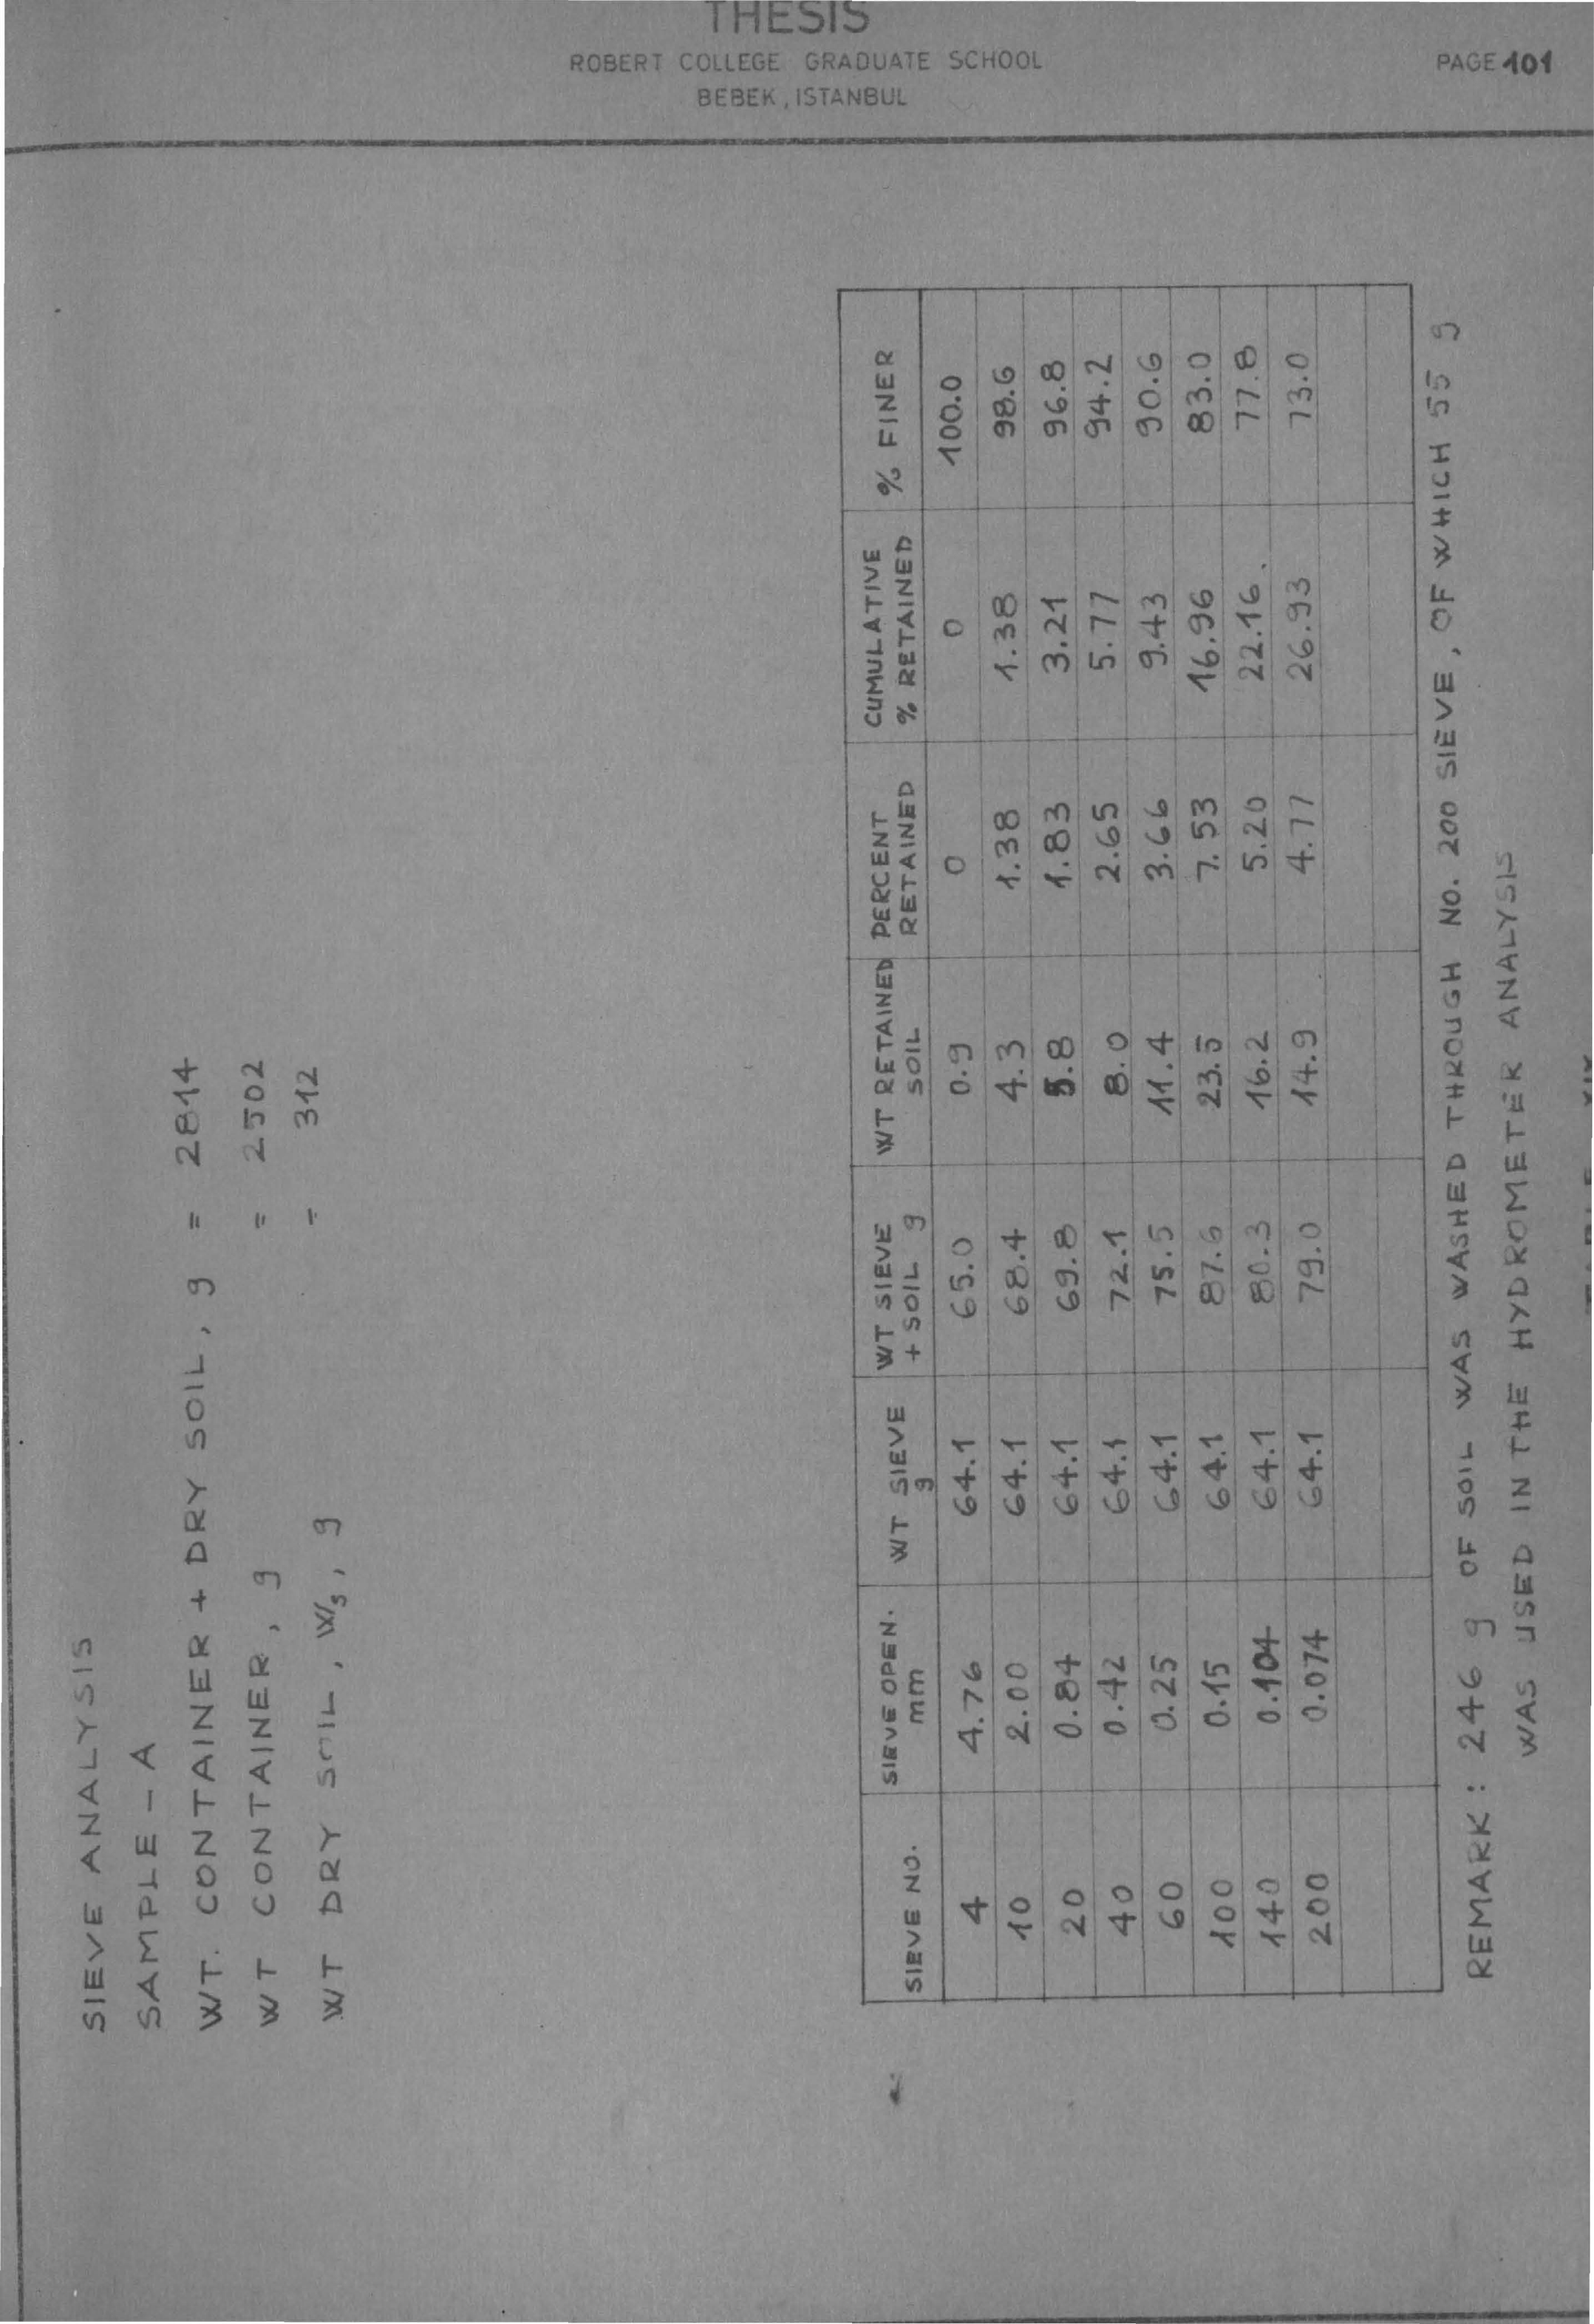 THESIS
ROBERT COLLEGE GRADUATE SCHOOL
BEBEK, ISTANBUL
PAGE 101
SIEVE ANALYSIS
SAMPLE - A
WT. CONTAINER + DRY SOIL, g = 2814
WT CONTAINER, g = 2502
WT DRY SOIL, Ws, g = 312
SIEVE NO. SIEVE OPEN. mm WT SIEVE g WT SIEVE + SOIL g WT RETAINED SOIL PERCENT RETAINED CUMULATIVE % RETAINED % FINER
4 4.76 64.1 65.0 0.9 0 0 100.0
10 2.00 64.1 68.4 4.3 1.38 1.38 98.6
20 0.84 64.1 69.8 5.8 1.83 3.21 96.8
40 0.42 64.1 72.1 8.0 2.65 5.77 94.2
60 0.25 64.1 75.5 11.4 3.66 9.43 90.6
100 0.15 64.1 87.6 23.5 7.53 16.96 83.0
140 0.104 64.1 80.3 16.2 5.20 22.16. 77.8
200 0.074 64.1 79.0 14.9 4.77 26.93 73.0
REMARK : 246 g OF SOIL WAS WASHED THROUGH NO. 200 SIEVE, OF WHICH 55 g
WAS USED IN THE HYDROMETER ANALYSIS